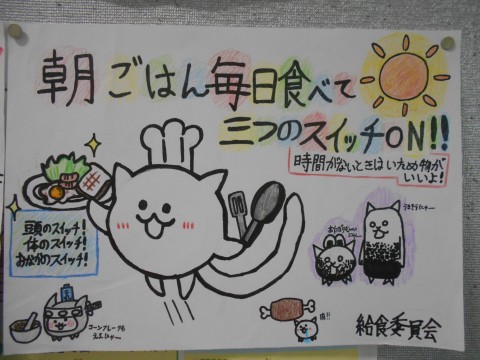 朝ごはん毎日食べて
三つのスイッチON!!
時間がないときはいため物が
いいよ!
頭のスイッチ!
体のスイッチ!
おなかのスイッチ!
コーンフレークも
ええにゃ〜
給食委員会